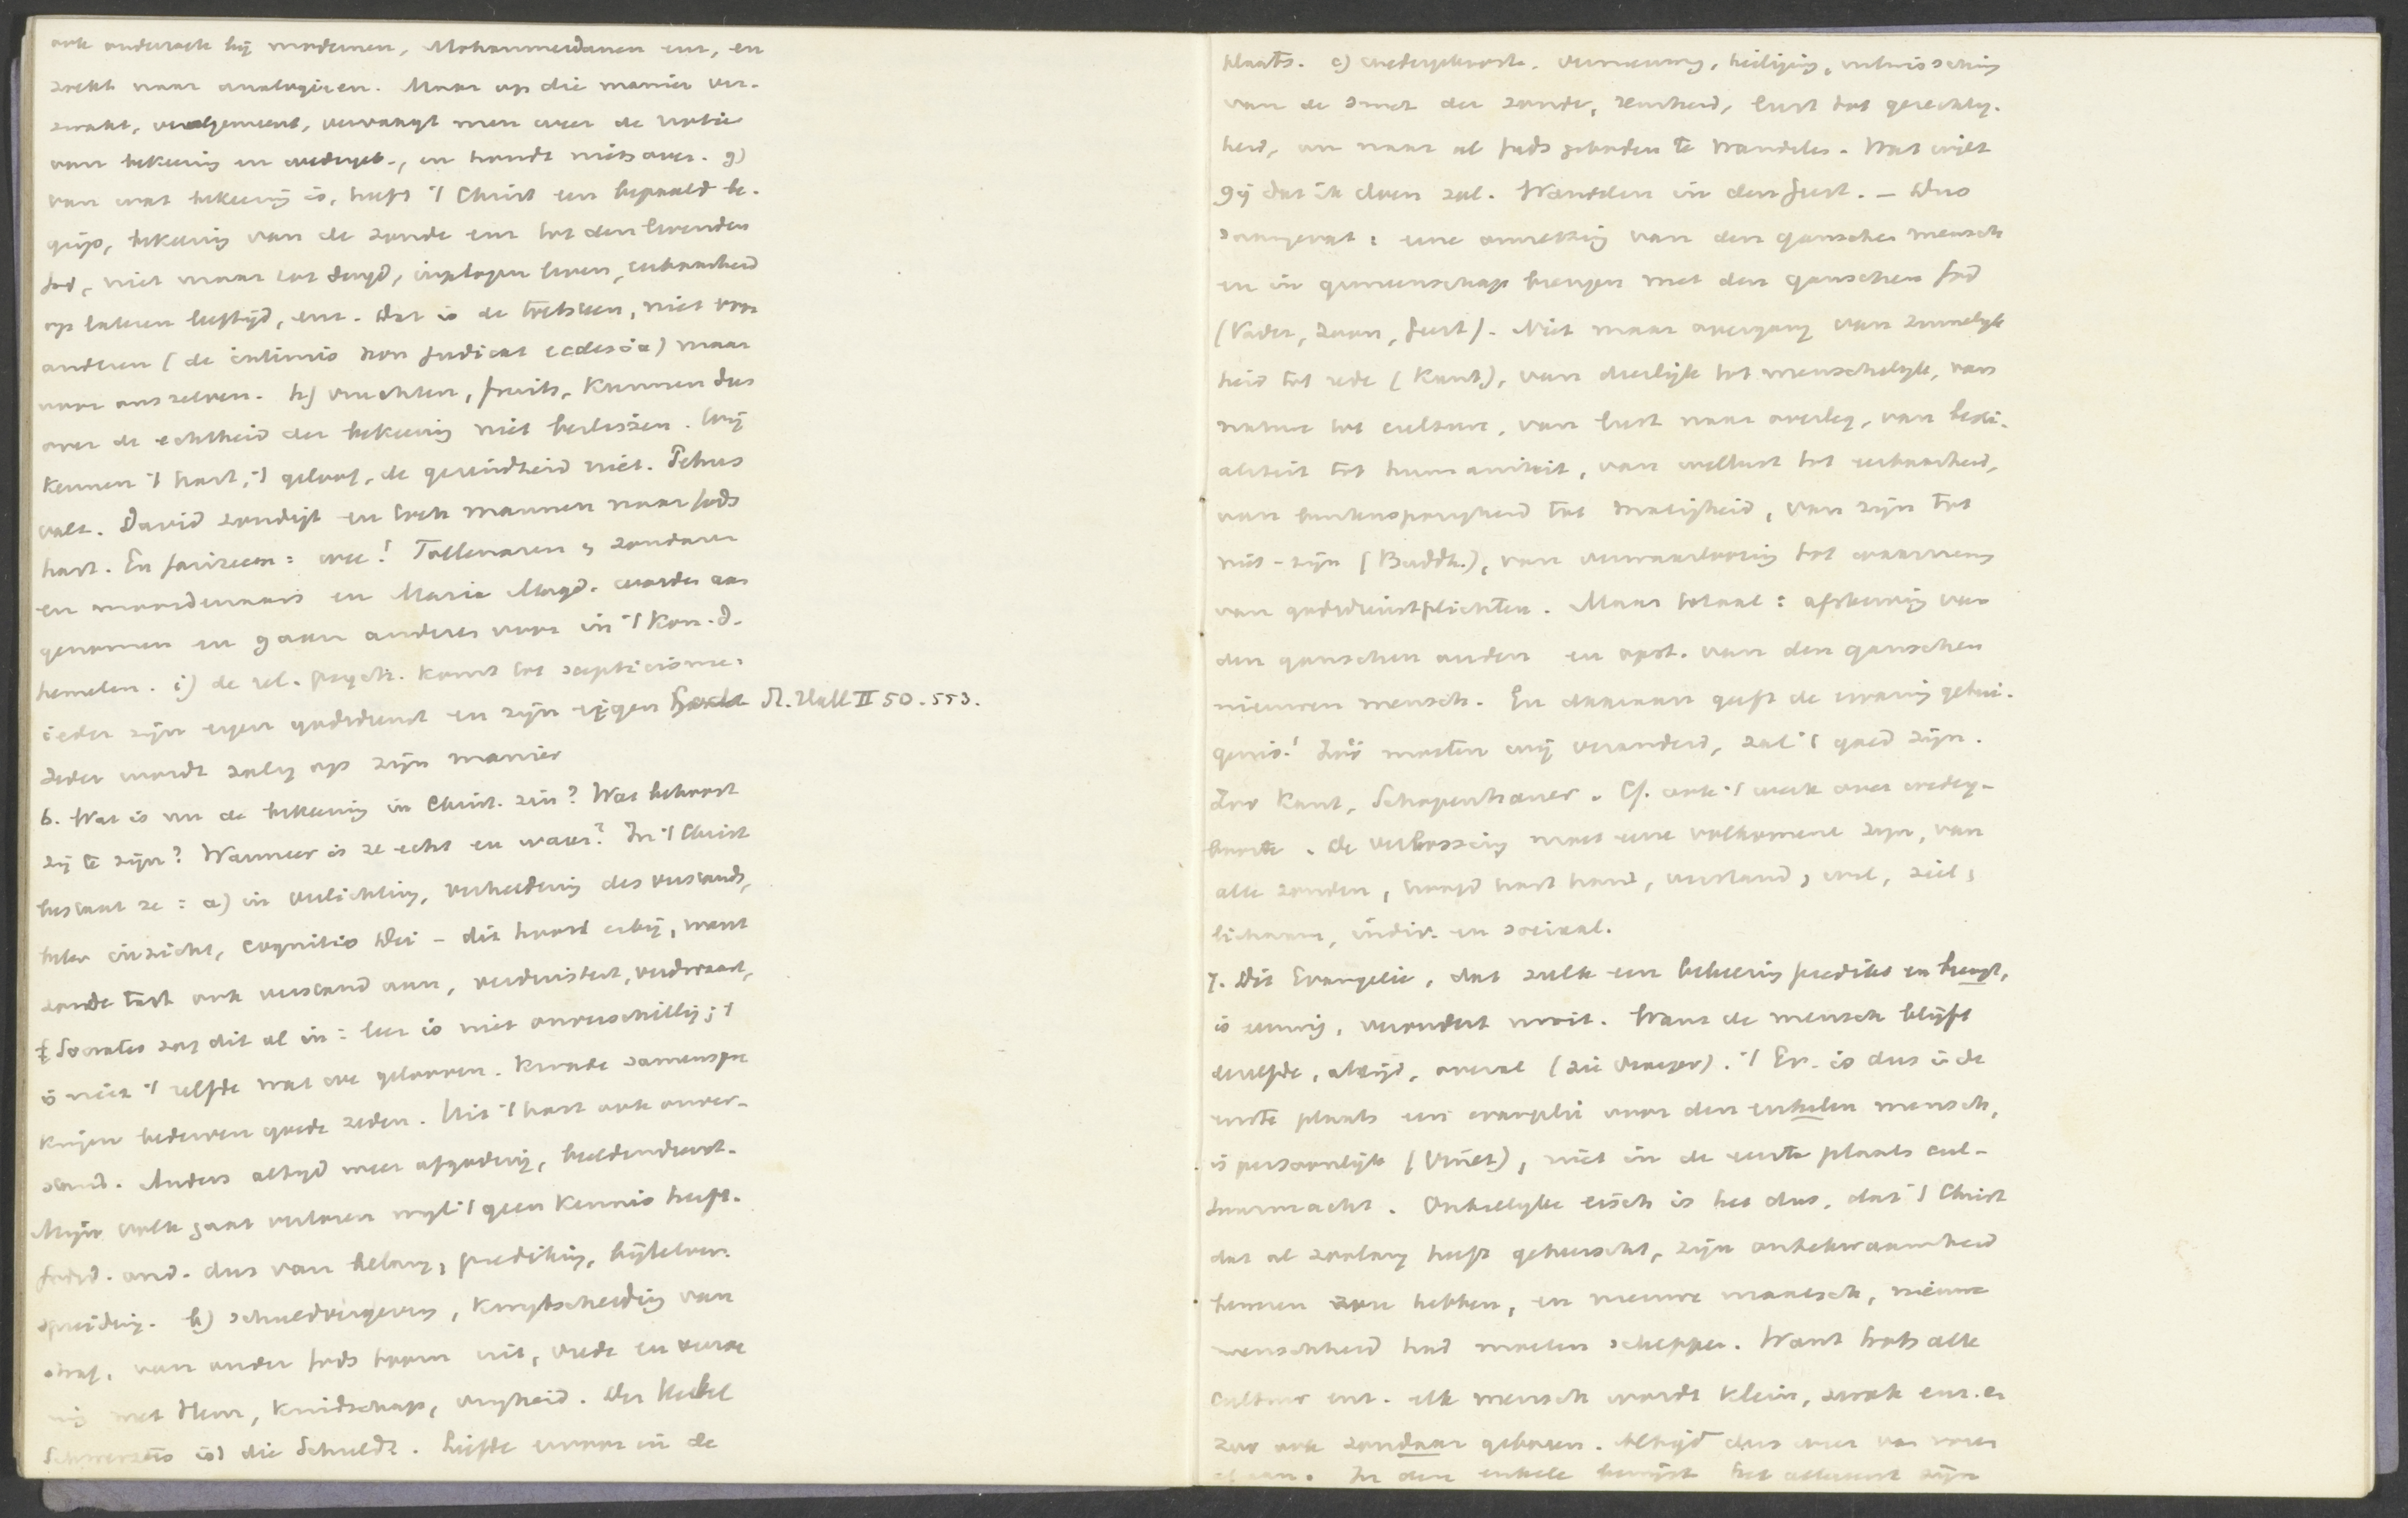 ook onderzoek bij modernen, Mohammedanen enz, en
zoekt naar analogieen. Maar op die manier ver-
zwakt, veralgemeent, vervangt men weer de notie
van bekeering en wedergeb., en houdt niets over. g)
van wat bekeering is, heeft 't Christ een bepaald be-
grijp, bekeering van de zonde enz tot den levenden
God, niet maar tot deugd, ingetogen leven, eerbaarheid
op lateren leeftijd, enz. Dat is de toetssteen, niet voor
anderen (de intimis non judicat ecclesia) maar
voor ons zelven. h) vruchten, fruits, kunnen dus
over de echtheid der bekeering niet beslissen. Wij
kennen 't hart, 't geloof, de gezindheid niet. Petrus
valt. David zondigt en toch mannen naar Gods
hart. En farizeen: wee! Tollenaren, zondaren
en moordenaars en Maria Magd. worden aan
genomen en gaan anderen voor in 't Kon. d.
hemelen. i) de rel. psych. komt tot scepticisme:
ieder zijn eigen godsdienst en zijn eigen St. Hall II 50. 553.
Ieder wordt zalig op zijn manier
6. Wat is nu de bekeering in Christ. zin? Wat behoort
zij te zijn? Wanneer is ze echt en waar? In 't Christ
bestaat ze: a) in verlichting, verheldering des verstands,
beter inzicht, cognitio Dei - dit hoort erbij, want
zonde tast ook verstand aan, verduistert, verdwaast,
Socrates zag dit al in: leer is niet onverschillig; 't
is niet 't zelfde wat we gelooven. Kwade samenspre
kingen bederven goede zeden. Uit 't hart ook onver-
stand. Anders altijd weer afgoderij, beeldendienst.
Mijn volk gaat verloren wijl 't geen kennis heeft.
Godsd. ond. dus van belang, prediking, bijbelver-
spreiding. b) schuldvergeving, kwijtschelding van
straf, van onder Gods toorn uit, vrede en verzoe
ning met Hem, kindschap, vrijheid. Der Uebel
Schwerstes ist die Schuld. Liefde ervoor in de
plaats. c) wedergeboorte, vernieuwing, heiliging, uitwissching
van de smet der zonde, reinheid, lust tot gerechtig-
heid, om naar al Gods geboden te wandelen. Wat wilt
gij dat ik doen zal. Wandelen in den geest. – Dus
saamgevat: eene omzetting van den ganschen mensch
en in gemeenschap brengen met den ganschen God
(Vader, Zoon, Geest). Niet maar overgang van zinnelijk
heid tot rede (Kant), van dierlijke tot menschelijke, van
natuur tot cultuur, van lust naar overleg, van besti-
aliteit tot humaniteit, van wellust tot eerbaarheid,
van buitensporigheid tot matigheid, van zijn tot
niet-zijn (Buddh.), van verwaarloozing tot waarneming
van godsdienstplichten. Maar totaal: afsterving van
den ganschen ouden en opst. van den ganschen
nieuwen mensch. En daaraan geeft de ervaring getui-
genis! Zóó moeten wij veranderd, zal 't goed zijn.
Zoo Kant, Schopenhauer. Cf. ook 't werk over wederg-
boorte. De verlossing moet eene volkomene zijn, van
alle zonden, hoofd hart hand, verstand, wil, ziel,
lichaam, indiv. en sociaal.
7. Dit Evangelie, dat zulk een bekeering predikt en brengt,
is eeuwig, verandert nooit. Want de mensch blijft
dezelfde, altijd, overal (zie vroeger). 't Ev. is dus in de
eerste plaats een evangelie voor den enkelen mensch,
is persoonlijk (Vinet), niet in de eerste plaats cul-
tuurmacht. Onbillijke eisch is het dus, dat 't Christ
dat al zoolang heeft geheerscht, zijn onbekwaamheid
bewezen zou hebben, en nieuwe maatsch, nieuwe
menschheid had moeten scheppen. Want trots alle
cultuur enz. elk mensch wordt klein, zwak enz. en
zoo ook zondaar geboren. Altijd dus weer van voren
af aan. In den enkele bewijst het allereerst zijn